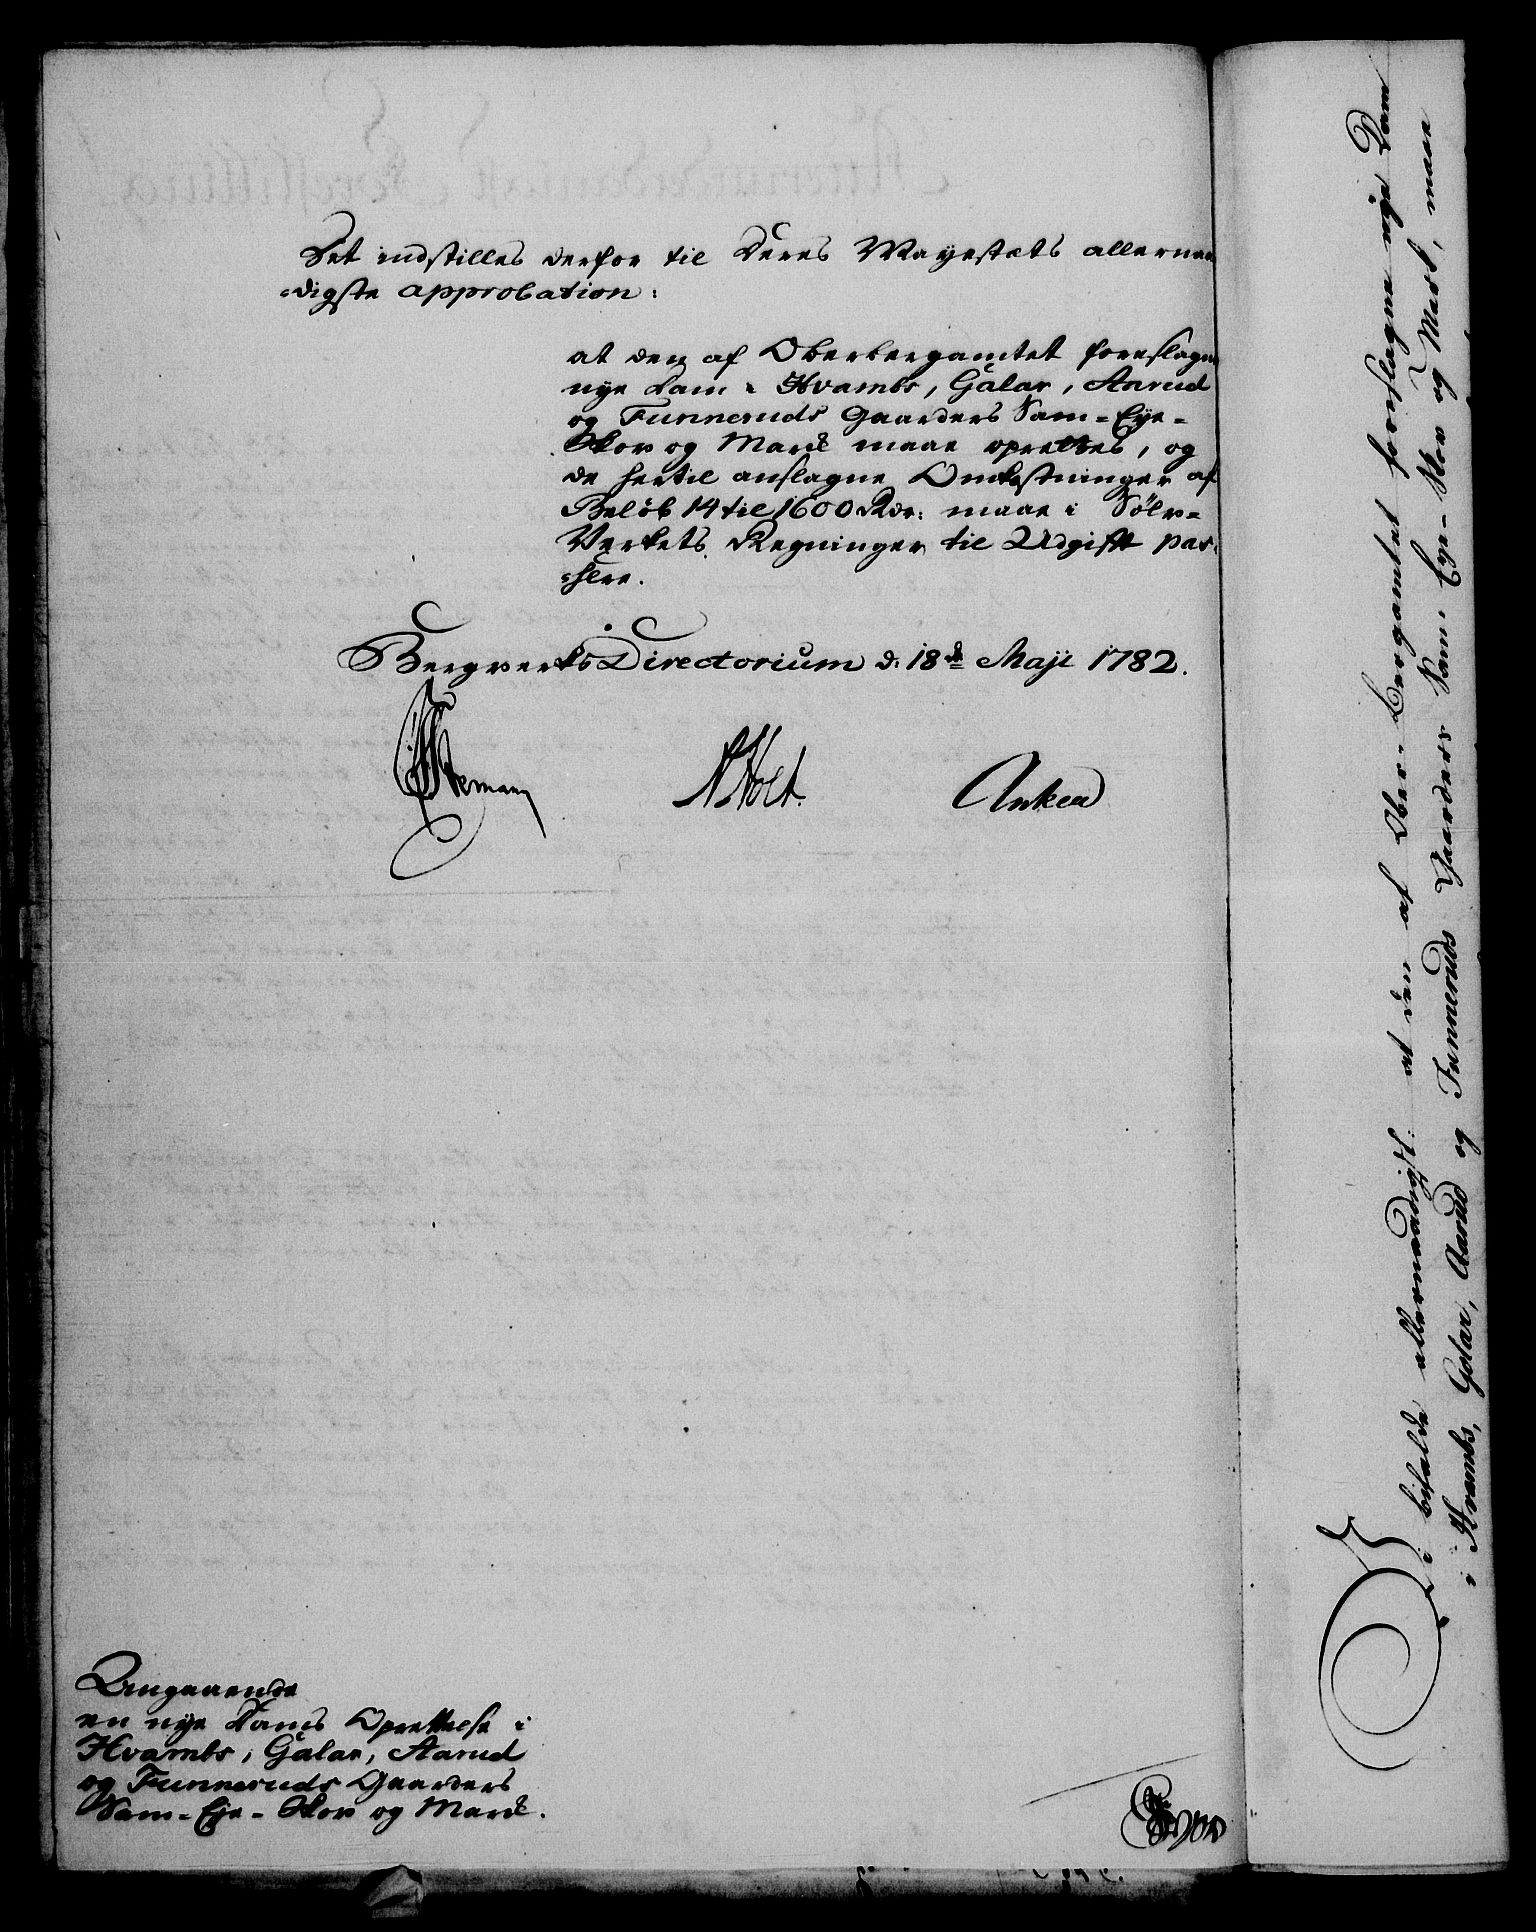 Det indstilles derfor til Deres Mayestæts allernaa
-digste approbation:
at den af Oberbergamtet foreslagne
nye Dam i Hvambs, Gålar, Aarud
og Funneruds Gaarders Sam-Eye-
Skov og Mark maae oprettes, og
de hertil anslagne Omkostninger af
Beløb 14 til 1600 Rdr: maae i Sölv-
Verkets Regninger til Udgift pas-
-sere.
Bergverks Directorium d: 18de Maji 1782.
Stemann
Holt.
Anker
Angaaende
en nye Dams Oprettelse i
Hvambs, Gålar, Aarud
og Funneruds Gaarders
Sam-Eje-Skov og Mark.
Vi bifalde allernaadigst: at den af Ober-Bergamtet foreslagne nye Dam
i Hvambs, Golar, Aarud og Funneruds Gaarders Sam-Eye-Skov og Mark, maae